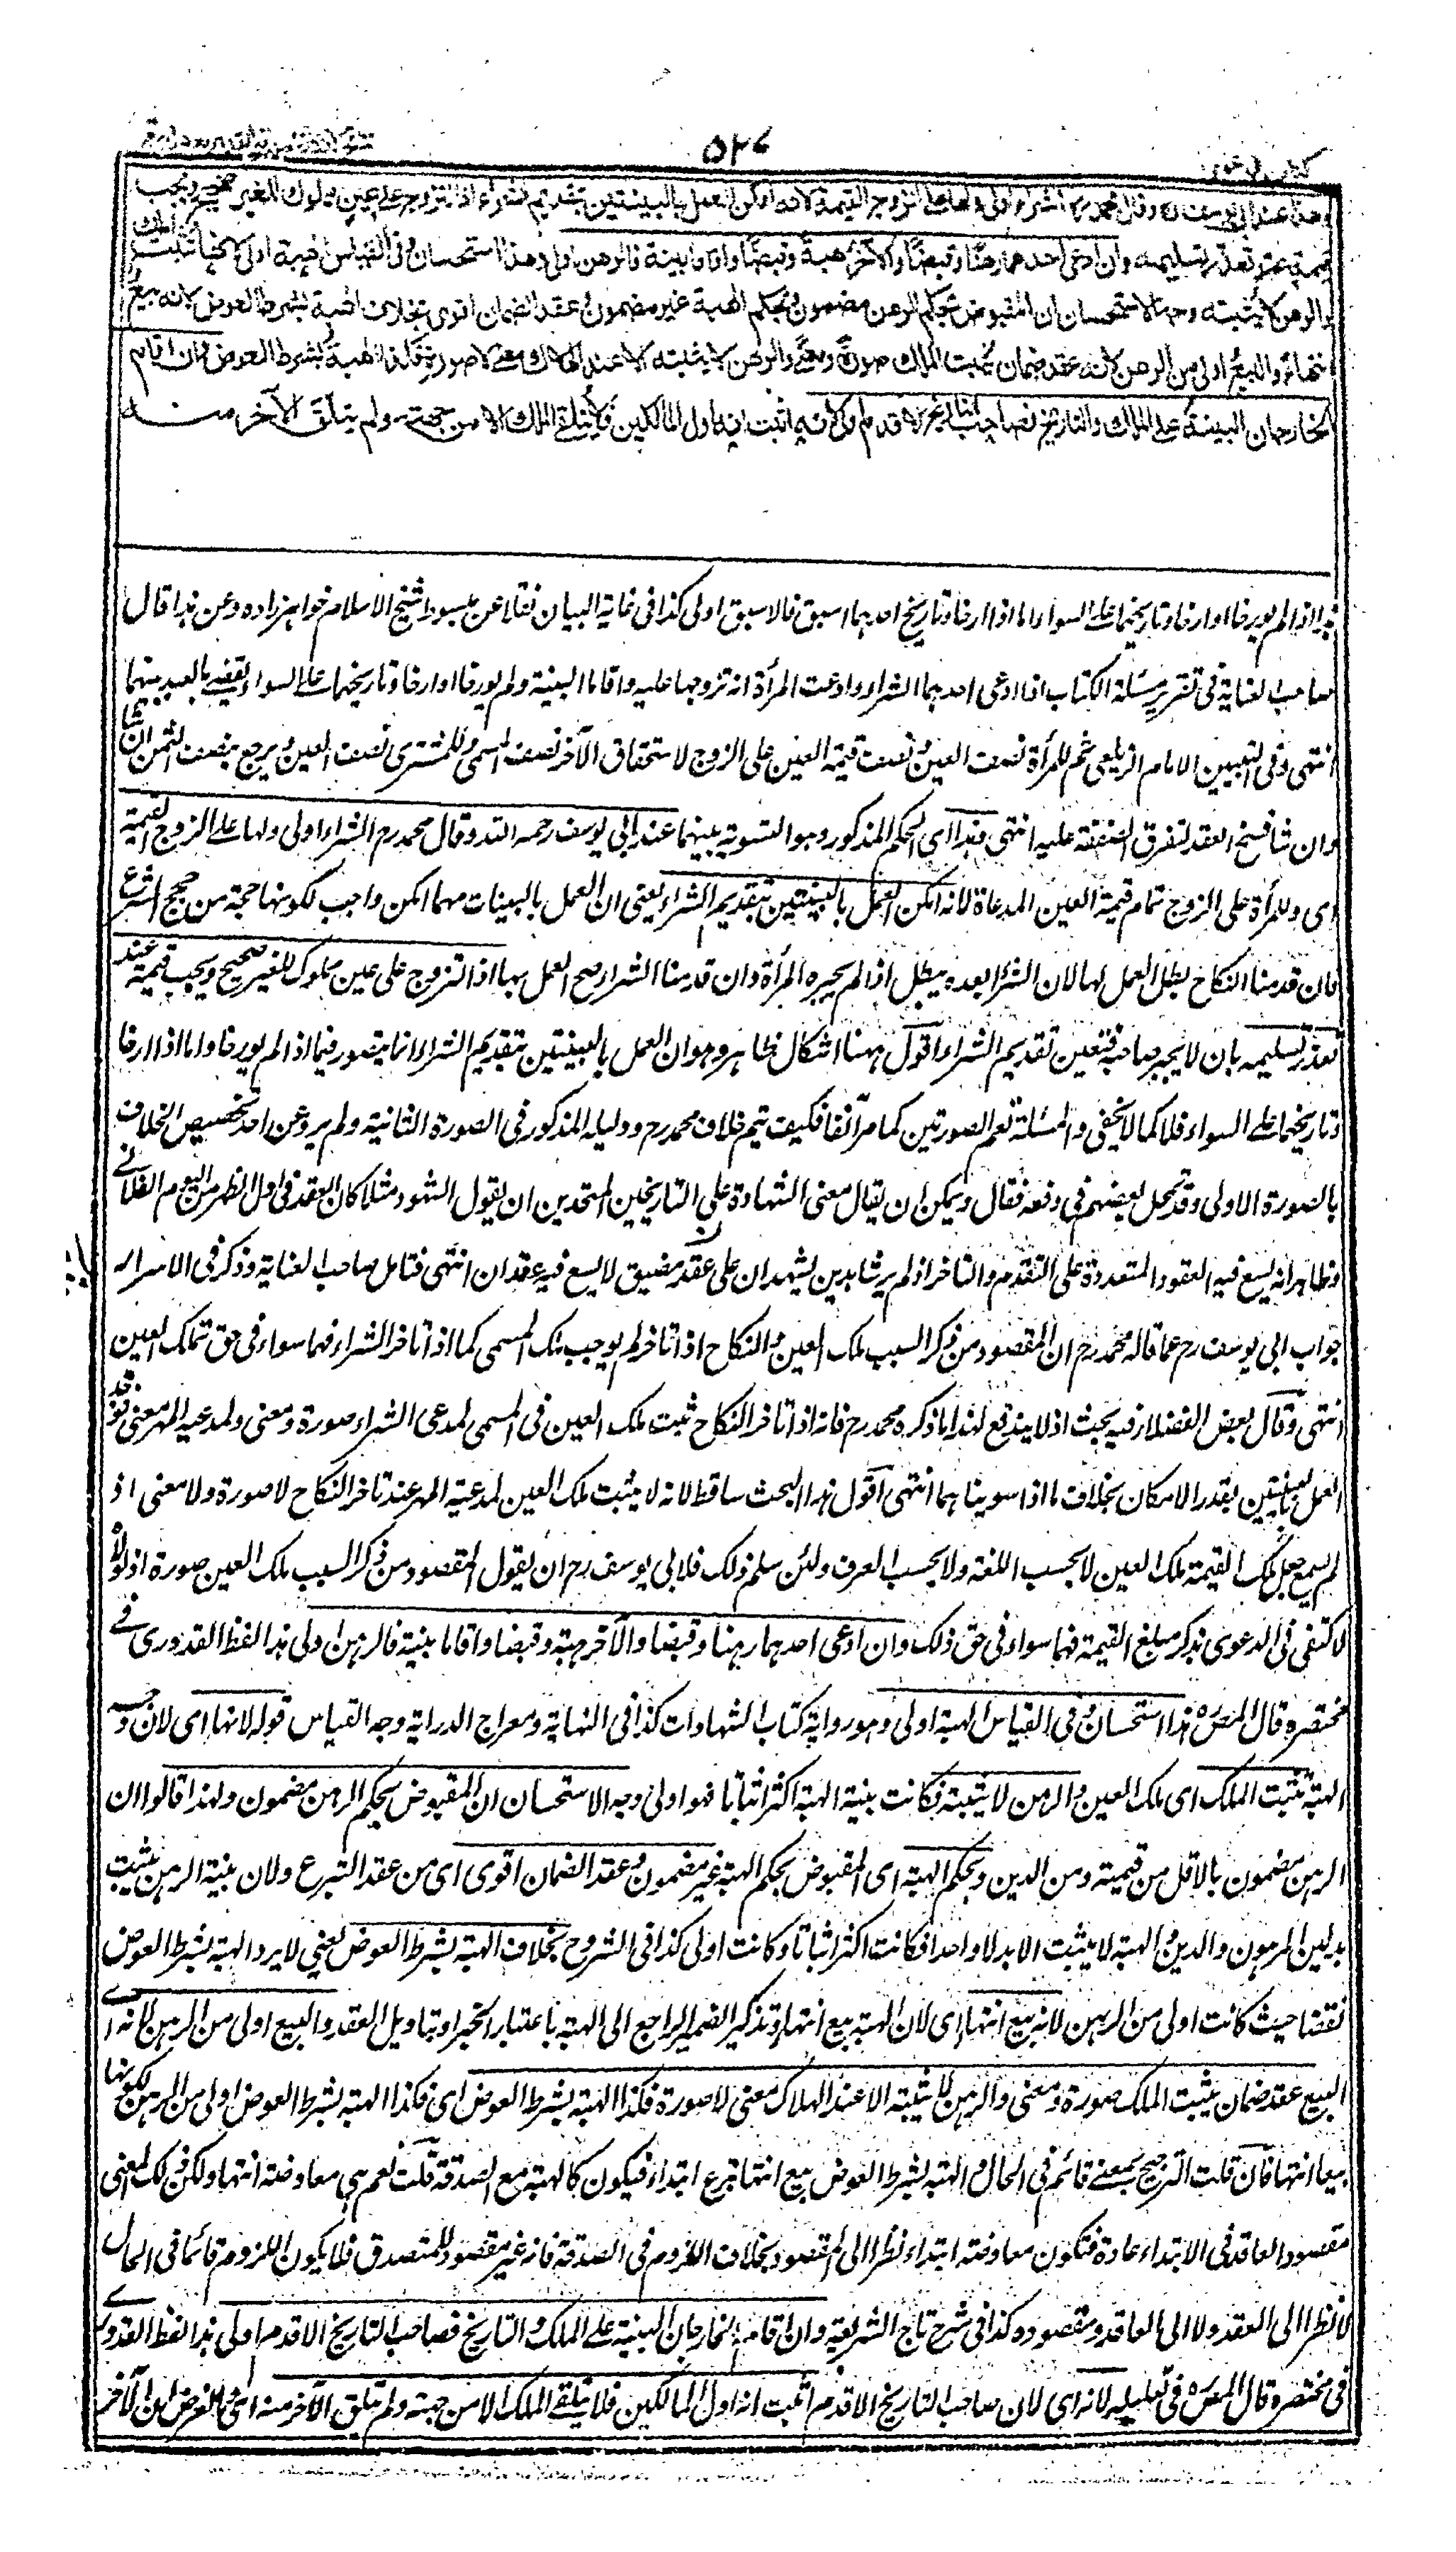 ٥٢٧
وهذا عند ابي يوسف رح وقال محمد رح الشراء اولى ولها على الزوج القيمة لانه امكن العمل بالبينتين بتقديم الشراء اذ التزوج على عين مملوك للغير صحيح ويجب
قيمته عند تعذر تسليمه وان ادعى احدهما رهنا وقبضا والآخر هبة وقبضا واقاما بينة فالرهن اولى وهذا استحسان وفي القياس الهبة اولى لانها تثبت الملك
والرهن لا يثبته وجه الاستحسان ان المقبوض بحكم الرهن مضمون وبحكم الهبة غير مضمون وعقد الضمان اقوى بخلاف الهبة بشرط العوض لانه بيع
انتهاء والبيع اولى من الرهن لانه عقد ضمان يثبت الملك صورة ومعنى والرهن لا يثبته الا عند الهلاك معنى لا صورة فكذا الهبة بشرط العوض وان اقام
الخارجان البينة على الملك والتاريخ فصاحب التاريخ الاقدم اولى لانه اثبت انه اول المالكين فلا يتلقى الملك الا من جهته ولم يتلق الآخر منه
هذا اذا لم يورخا او ارخا وتاريخهما على السواء واما اذا ارخا وتاريخ احدهما اسبق فالاسبق اولى كذا في غاية البيان نقلا عن مبسوط شيخ الاسلام خواهرزاده وعن هذا قال
صاحب العناية في تقرير مسئلة الكتاب اذا ادعى احدهما الشراء وادعت المرأة انه تزوجها عليه واقاما البينة ولم يورخا او ارخا وتاريخهما على السواء يقضى بالعبد بينهما
انتهى وفي التبيين الامام الزيلعي ثم للمرأة نصف العين ونصف قيمة العين على الزوج لاستحقاق الآخر نصف المسمى وللمشتري نصف العين ويرجع بنصف الثمن ان شاء
وان شا فسخ العقد لتفرق الصفقة عليه انتهى وهذا اى الحكم المذكور وهو التسوية بينهما عند ابي يوسف رحمه الله وقال محمد رح الشراء اولى ولها على الزوج القيمة
اى وللمرأة على الزوج تمام قيمة العين المدعاة لانه امكن العمل بالبينتين بتقديم الشراء يعنى ان العمل بالبينات مهما امكن واجب لكونها حجة من حجج الشرع
فان قدمنا النكاح بطل العمل لها لان الشراء بعده يبطل اذا لم يجيزه المرأة وان قدمنا الشراء صح العمل بها اذ التزوج على عين مملوك للغير صحيح ويجب قيمته عند
تعذر تسليمه بان لا يجيز صاحبه فتعين تقديم الشراء اقول ههنا اشكال ظاهر وهو ان العمل بالبينتين بتقديم الشراء انما يتصور فيما اذا لم يورخا واما اذا ارخا
وتاريخهما على السواء فلا كما لا يخفى والمسئلة تعم الصورتين كما مر آنفا فكيف يتم خلاف محمد رح ودليله المذكور في الصورة الثانية ولم يرو عن احد تخصيص الخلاف
بالصورة الاولى وقد تمحل بعضهم في دفعه فقال ويمكن ان يقال معنى الشهادة على التاريخين المتحدين ان يقول الشهود مثلا كان العقد في اول الظهر من اليوم الفلاني
وظاهر انه يسع فيه العقود المتعددة على التقدم والتاخر اذ لم ير شاهدين يشهدان على عقد مضيق لا يسع فيه عقدان انتهى فتامل صاحب العناية وذكر في الاسرار
جواب ابي يوسف رح عما قاله محمد رح ان المقصود من ذكر السبب ملك العين والنكاح اذا تاخر لم يوجب ملك المسمى كما اذا تاخر الشراء فهما سواء في حق تملك العين
انتهى وقال بعض الفضلاء فيه بحث اذ لا يندفع لهذا ما ذكره محمد رح فانه اذا تاخر النكاح ثبت ملك العين في المسمى لمدعي الشراء صورة ومعنى ولمدعية المهر معنى فوجد
العمل بالبينتين بقدر الامكان بخلاف ما اذا سوينا بهما انتهى اقول هذا البحث ساقط لانه لا يثبت ملك العين لمدعية المهر عند تاخر النكاح لا صورة ولا معنى اذ
لم يسمع جعل ملك القيمة ملك العين لا بحسب اللغة ولا بحسب العرف ولئن سلم ذلك فلابي يوسف رح ان يقول المقصود من ذكر السبب ملك العين صورة اذ لولاه
لاكتفى في الدعوى بذكر مبلغ القيمة فهما سواء في حق ذلك وان ادعى احدهما رهنا وقبضا والآخر هبة وقبضا واقاما بينة فالرهن اولى هذا لفظ القدوري في
مختصره قال المصره هذا استحسان وفي القياس الهبة اولى وهو رواية كتاب الشهادات كذا في النهاية ومعراج الدراية وجه القياس قوله لانها اى لان
الهبة تثبت الملك اى ملك العين والرهن لا يثبته فكانت بينة الهبة اكثر اثباتا فهو اولى وجه الاستحسان ان المقبوض بحكم الرهن مضمون ولهذا قالوا ان
الرهن مضمون بالاقل من قيمته ومن الدين وبحكم الهبة اى المقبوض بحكم الهبة غير مضمون وعقد الضمان اقوى اى من عقد التبرع ولان بينة الرهن يثبت
بدلين المرهون والدين والهبة لا يثبت الا بدلا واحدا فكانت اكثر اثباتا وكانت اولى كذا في الشروح بخلاف الهبة بشرط العوض يعنى لا يرد الهبة بشرط العوض
نقضا حيث كانت اولى من الرهن لانه بيع انتهاء اى لان الهبة بيع انتهاء وتذكير الضمير الراجع الى الهبة باعتبار الخبر او بتاويل العقد والبيع اولى من الرهن لانه اى
البيع عقد ضمان يثبت الملك صورة ومعنى والرهن لا يثبته الا عند الهلاك معنى لا صورة فكذا الهبة بشرط العوض اى فكذا الهبة بشرط العوض اولى من الرهن لكونها
بيعا انتهاء فان قلت الترجيح بمعنى قائم في الحال والهبة بشرط العوض بيع انتهاء تبرع ابتداء فيكون كالهبة مع الصدقة قلت نعم هي معاوضة انتهاء ولكن ذلك المعنى
مقصود العاقد في الابتداء عادة فتكون معاوضة ابتداء نظرا الى المقصود بخلاف اللزوم في الصدقة فانه غير مقصود للمتصدق فلا يكون اللزوم قائما في الحال
لا نظرا الى العقد ولا الى العاقد ومقصوده كذا في شرح تاج الشريعة وان اقام الخارجان البينة على الملك والتاريخ فصاحب التاريخ الاقدم اولى هذا لفظ القدوري
في مختصره قال المصره في تعليله لانه اى لان صاحب التاريخ الاقدم اثبت انه اول المالكين فلا يتلقى الملك الا من جهته ولم يتلق الآخر منه اى الفرض ان الآخر